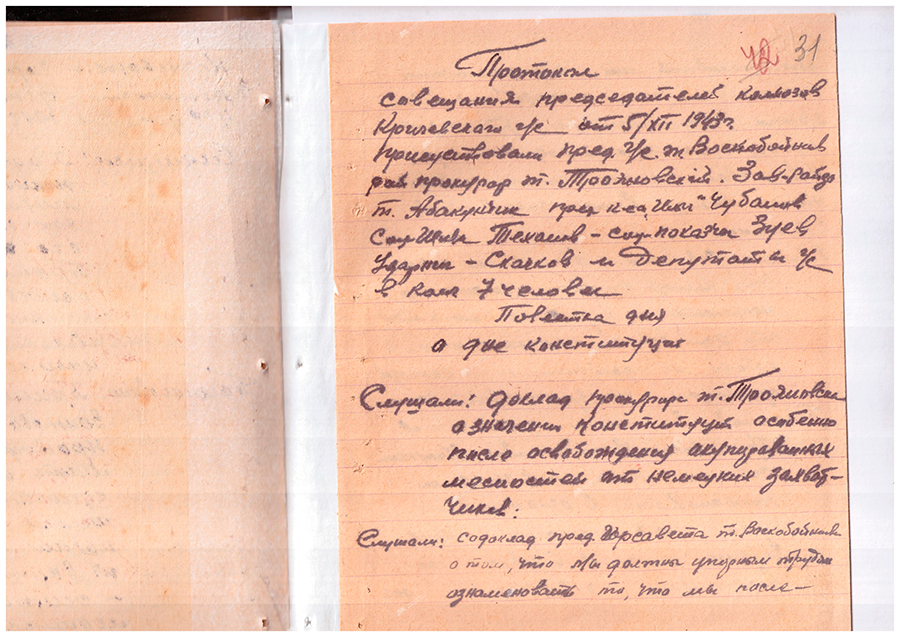 42 31
Протокол
совещания председателей колхозов
Кричевского г/с от 5/XII 1943 г.
Присуствовали пред. г/с т. Воскобойников
рай прокурор т. Трояновский. Зав-райзо
т. Абакунчик пред к-за Чубанов
Зуев
- Скачков и Депутаты г/с
в кол 7 человек
Повестка дня
о дне конституции
Слушали: доклад прокурора т. Трояновски
о значении Конституции особенно
после освобождения окупированных
месностей от немецких захват-
чиков:
Слушали: содоклад пред. Горсавета т. Воскобойников
о том, что мы должны упорным трудом
ознаменовать то, что мы после-